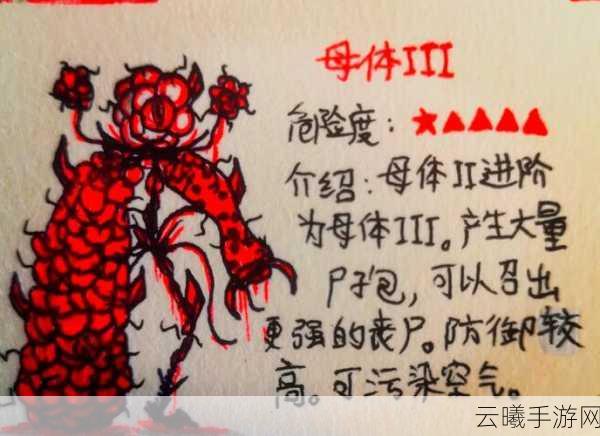 母体III
危险度：★▲▲▲▲▲
介绍：母体II进阶
为母体III。产生大量
尸孢，可以召出
更强的丧尸。防御较
高。可污染空气。
云曦手游网